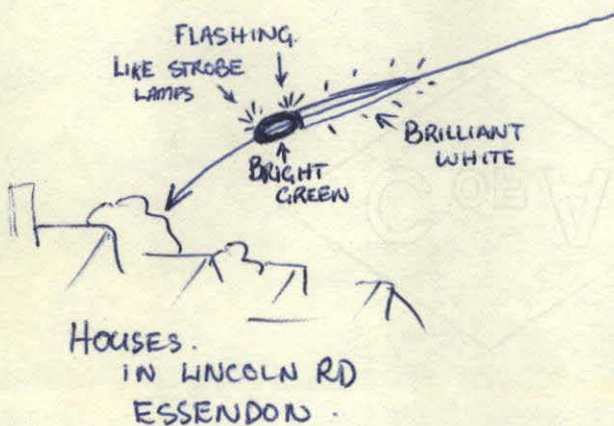 FLASHING.
LIKE STROBE
LAMPS
BRILLIANT
WHITE
BRIGHT
GREEN
HOUSES.
IN LINCOLN RD
ESSENDON.